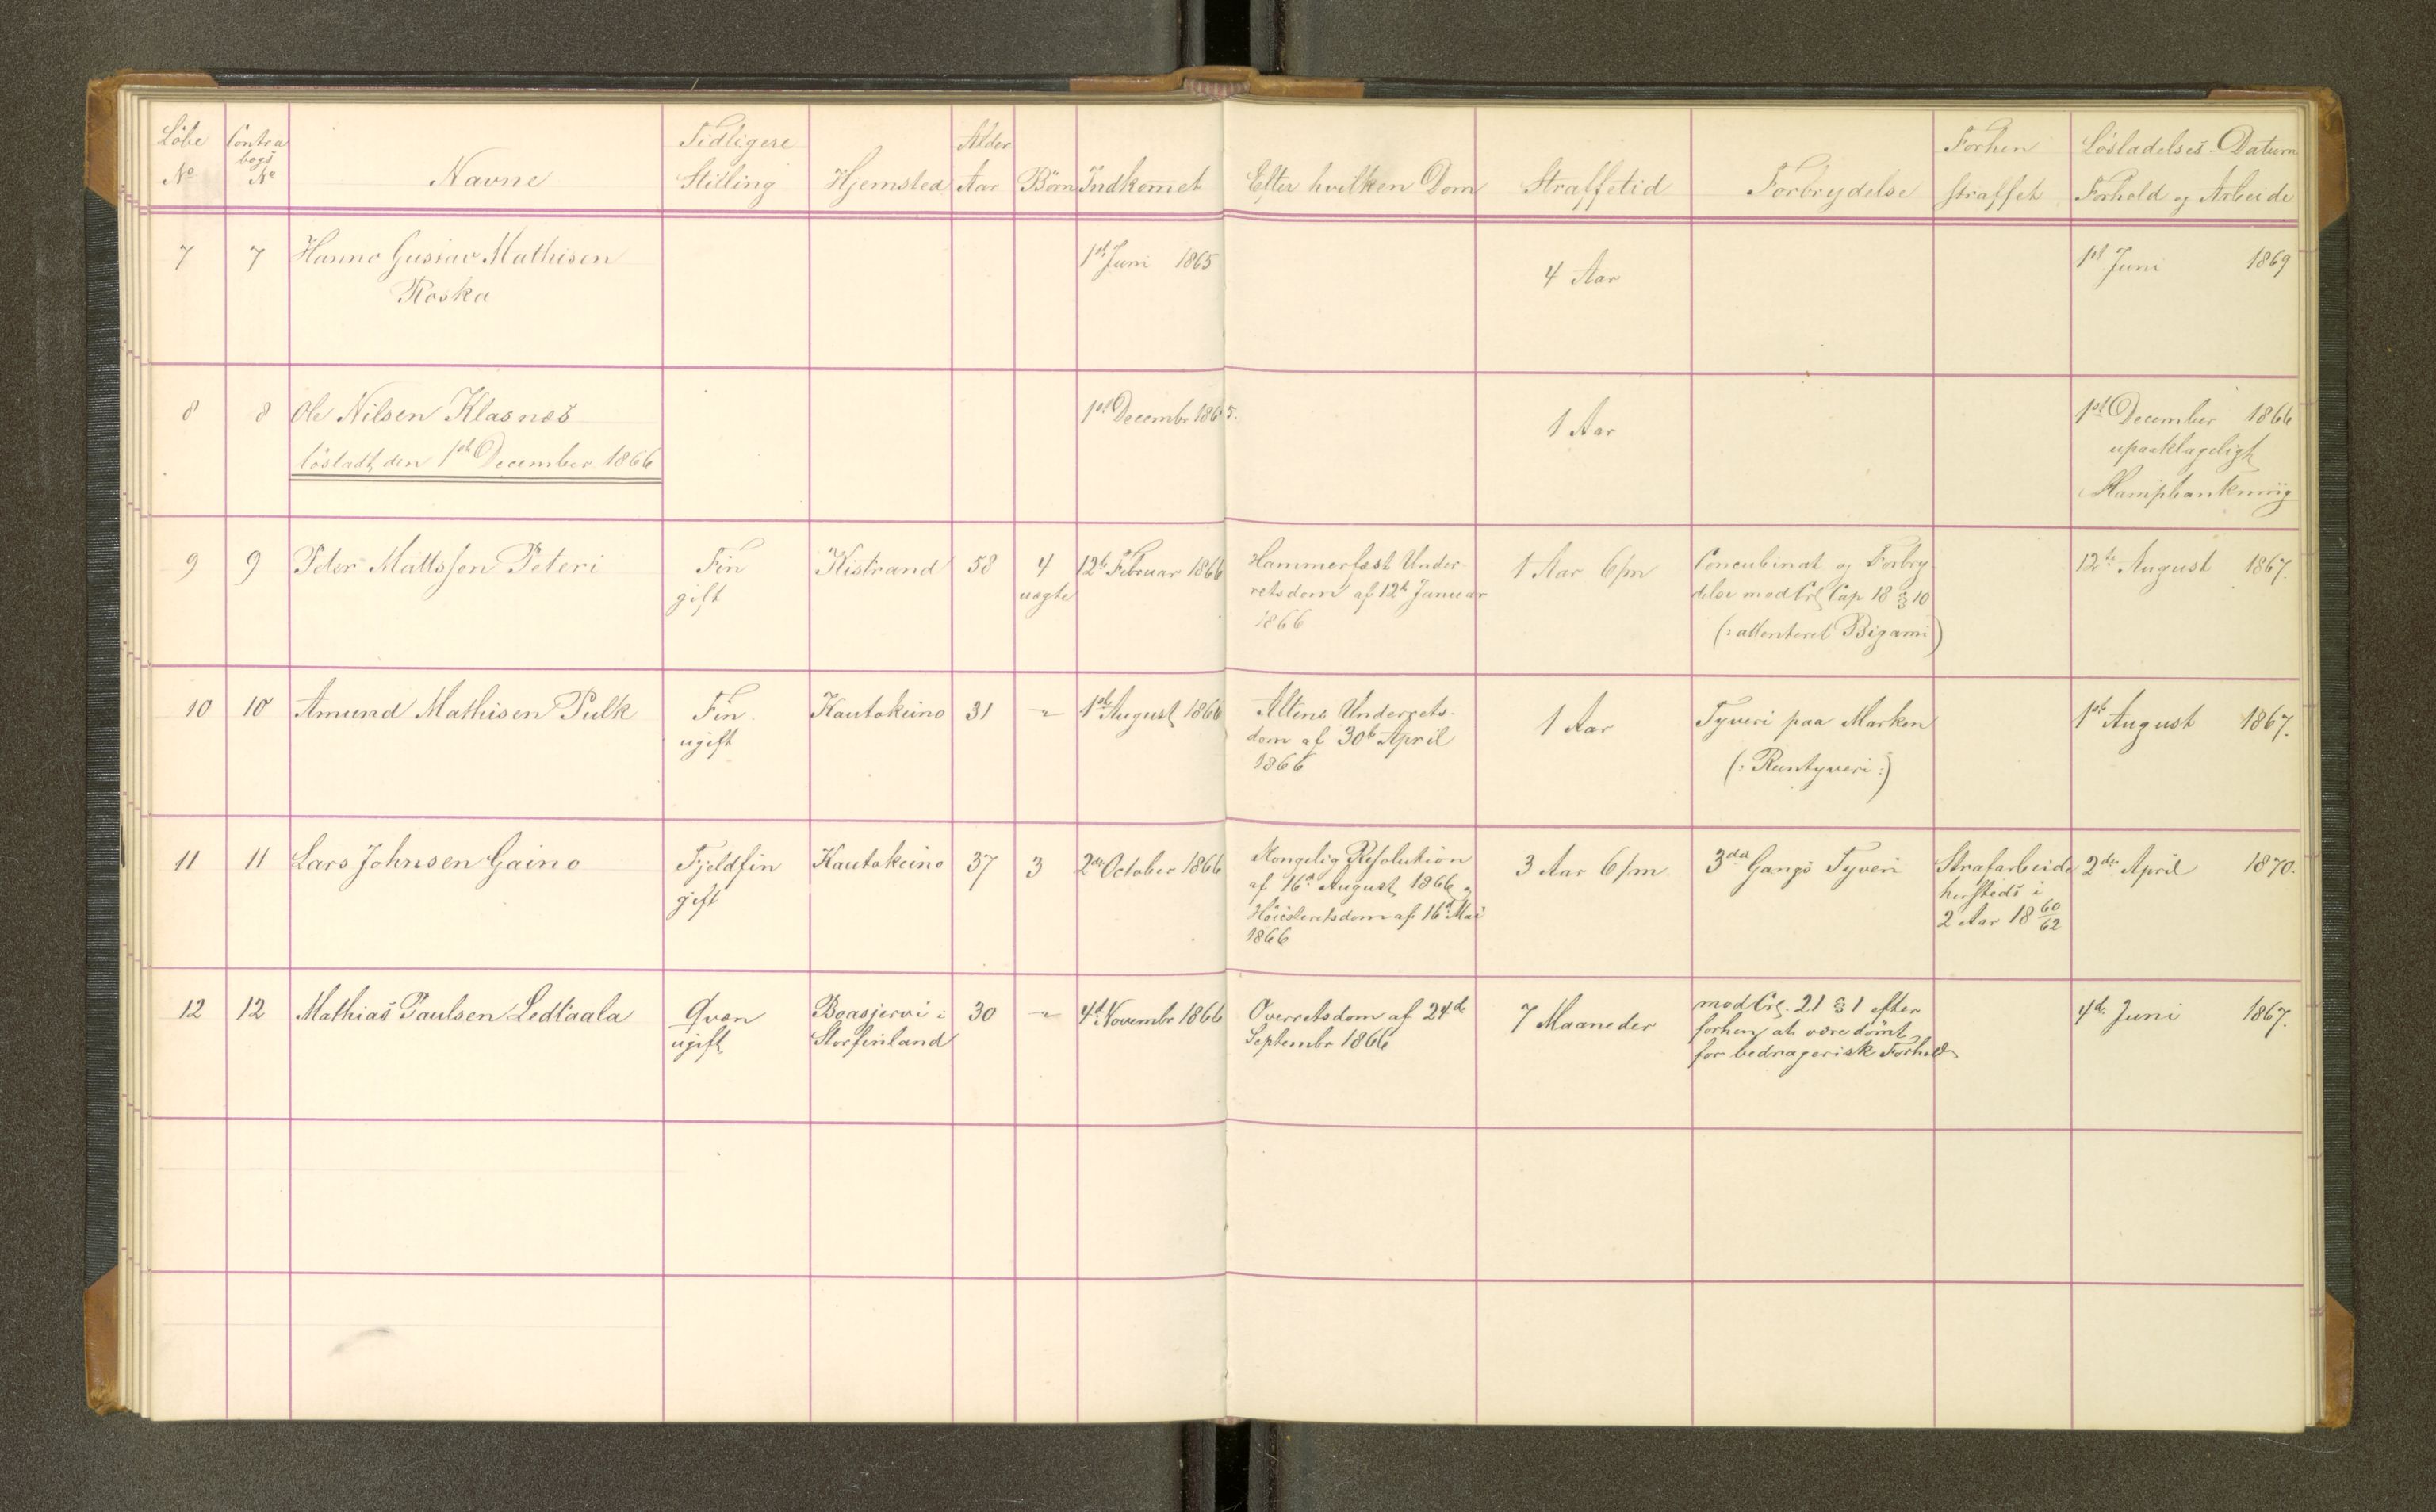 Löbe Contra Tidligere Alder Forhen Lösladelses-Datum
No bogs No Navne Stilling Hjemsted Aar Börn Indkomet Efter hvilken Dom Straffetid Forbrydelse straffet Forhold og Arbeide
7 7 Hanno Gustav Mathisen 1st Juni 1865 4 Aar 1st Juni 1869
Koska
8 8 Ole Nilsen Klasnes 1st Decembr 1865. 1 Aar 1st December 1866
lösladt den 1st December 1866 upaaklageligt
Hampbankning
9 9 Peter Mattssen Peteri Fin Kistrand 58 4 12te Februar 1866 Hammerfest Under- 1 Aar 6/m Concubinat og Forbry- 12te August 1867.
gift uegte retsdom af 12te Januar delse mod Crl Cap 18 § 10
1866 (: attenteret Bigami)
10 10 Amund Mathisen Pulk Fin Kautokeino 31 " 1st August 1866 Altens Underrets- 1 Aar Tyveri paa Marken 1st August 1867.
ugift dom af 30te April (: Rentyveri :)
1866
11 11 Lars Johnsen Gaino Fjeldfin Kautokeino 37 3 2den October 1866 Kongelig Resolution 3 Aar 6/m 3die Gangs Tyveri Strafarbeide 2den April 1870.
gift af 16de August 1866 og hersteds i
Höiesteretsdom af 16de Mai 2 Aar 18 60/62
1866
12 12 Mathias Paulsen Ledtaala Qvæn Boasjervi i 30 " 4de Novembr 1866 Overretsdom af 24de 7 Maaneder mod Crl. 21 § 1 efter 4de Juni 1867.
ugift Storfinland Septembr 1866 forhen at være dömt
for bedragerisk Forhold